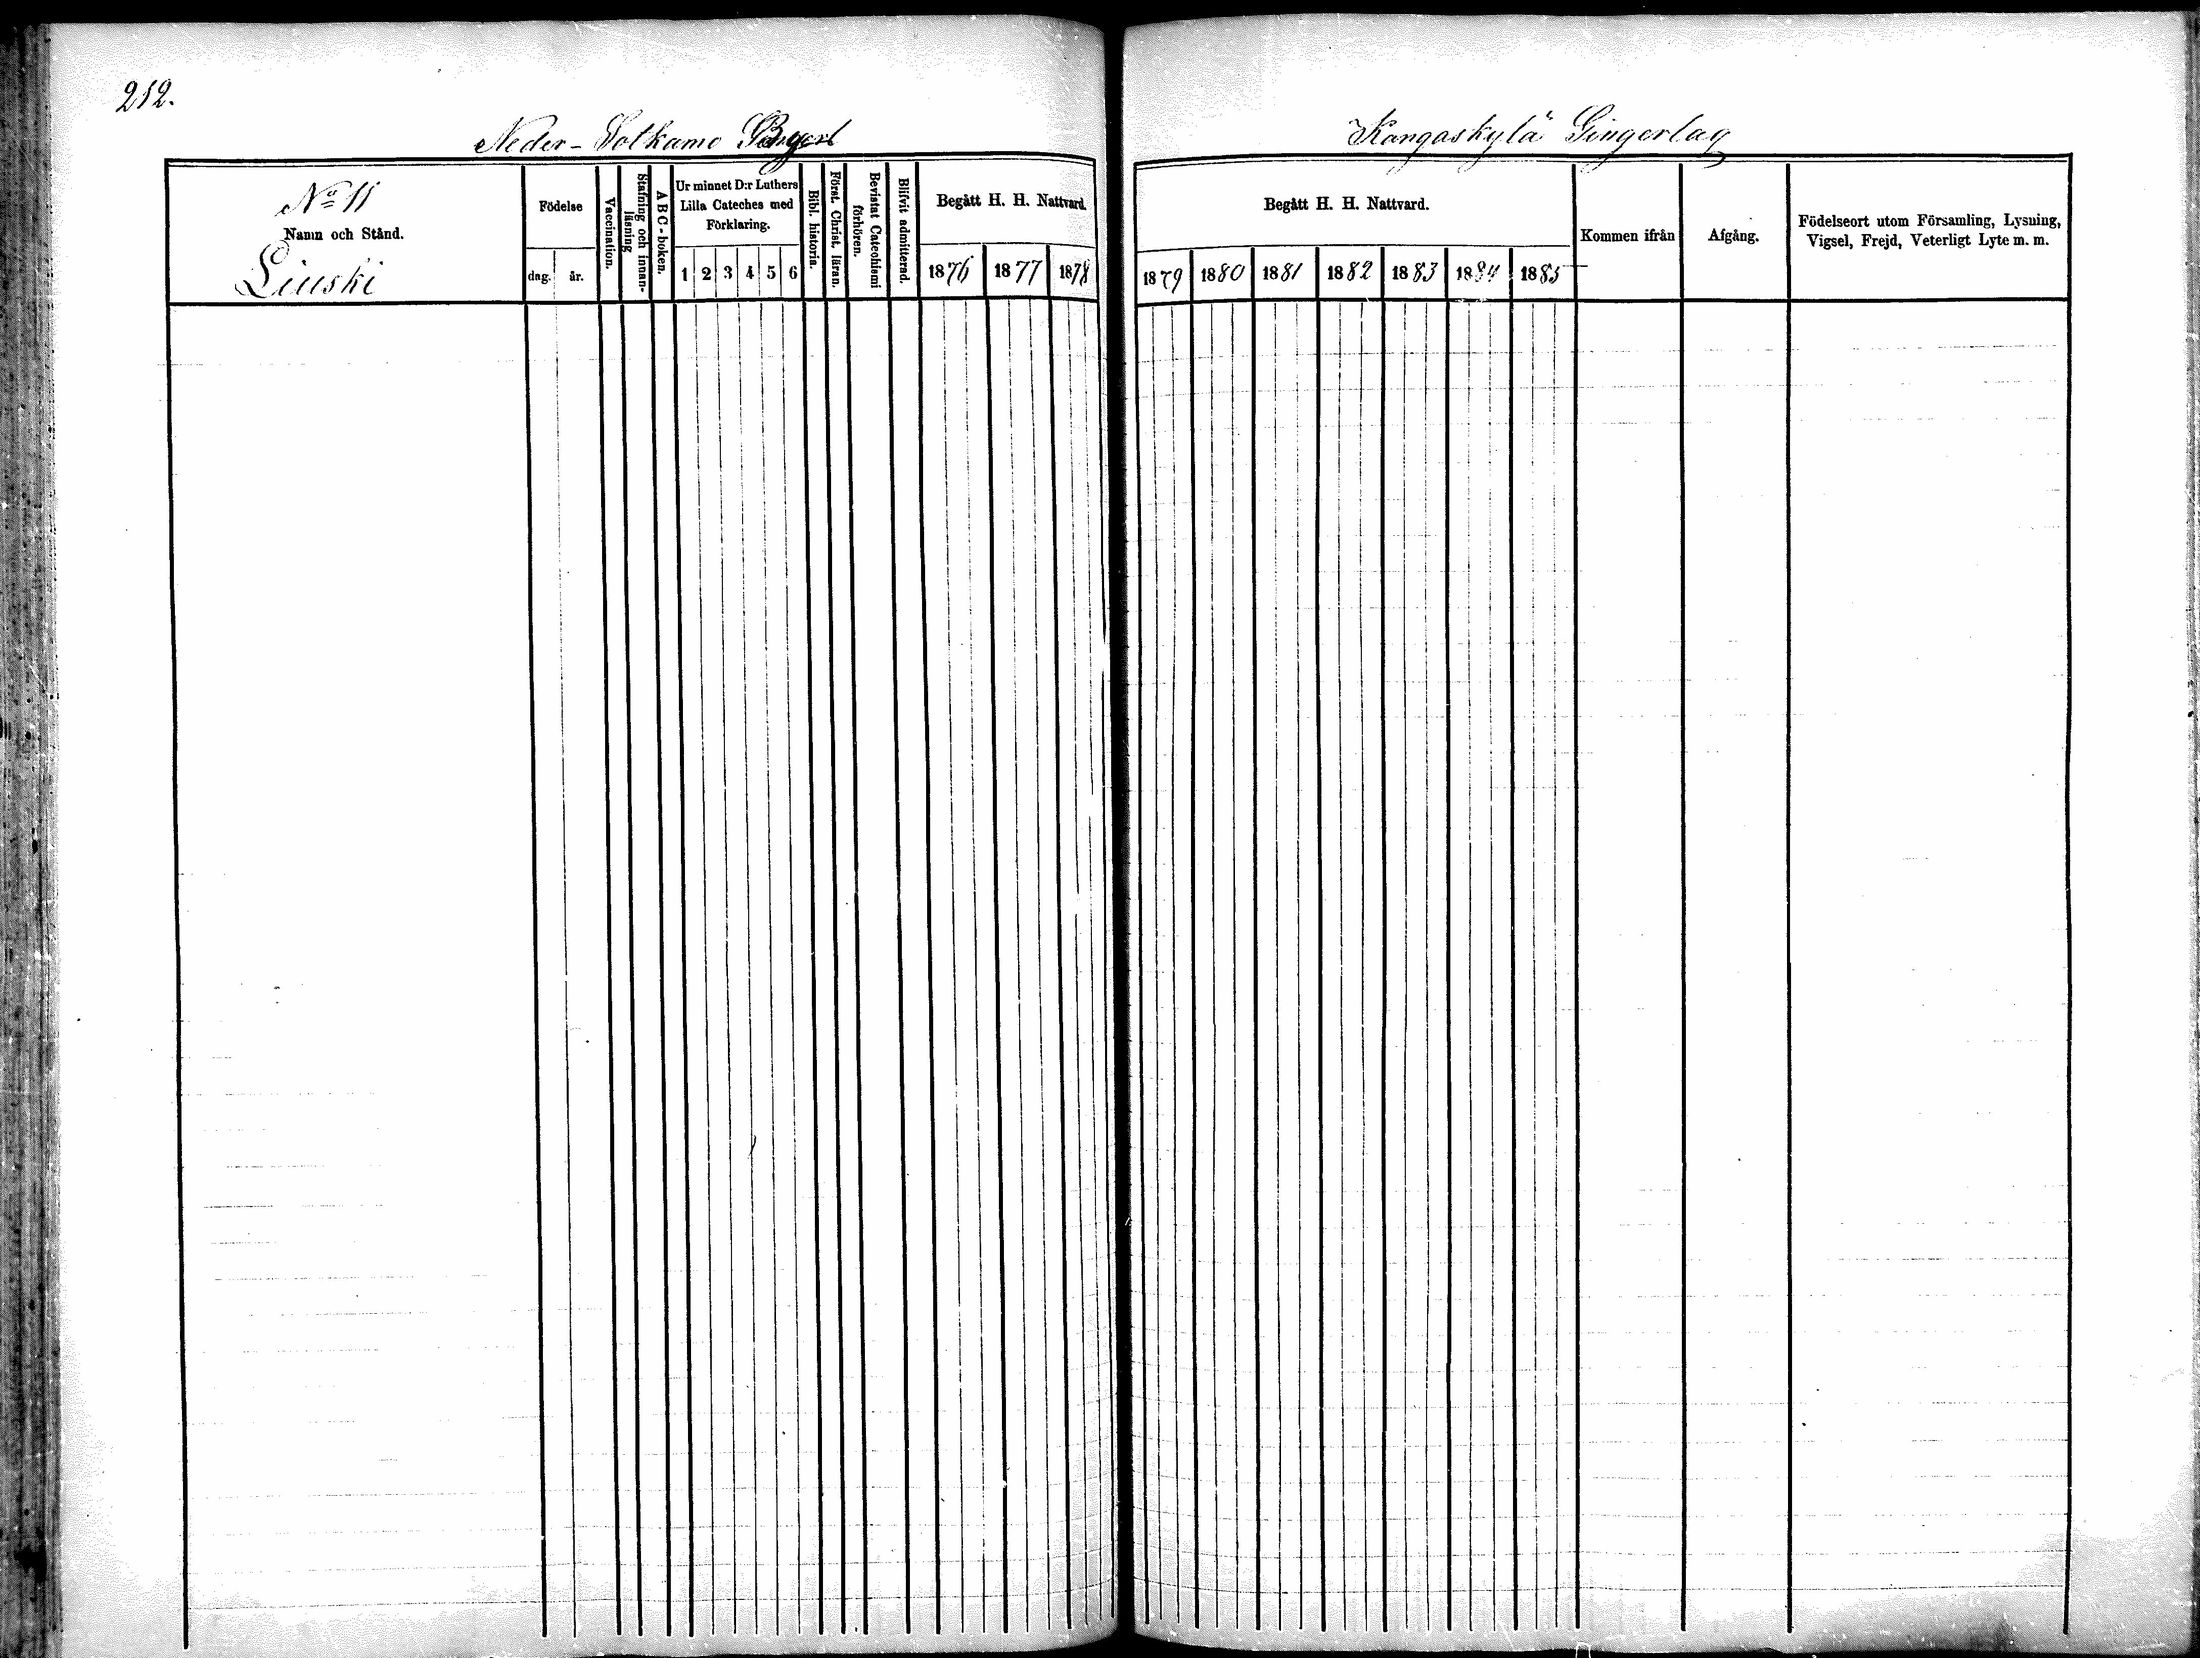 212.
Neder-Sotkamo By
Kangaskylä Gingerlag
No 11
Namn och Stånd.
Liuski
Födelse
dag. år.
Vaccination.
Stafning och innanläsning
A B C - boken.
Ur minnet D:r Luthers
Lilla Cateches med
Förklaring.
1 2 3 4 5 6
Bibl. historia.
Först. Christ. läran.
Bevistat Catechismi
förhören.
Blifvit admitterad.
Begått H. H. Nattvard.
1876 1877 1878
Begått H. H. Nattvard.
1879 1880 1881 1882 1883 1884 1885
Kommen ifrån
Afgång.
Födelseort utom Församling, Lysning,
Vigsel, Frejd, Veterligt Lyte m. m.